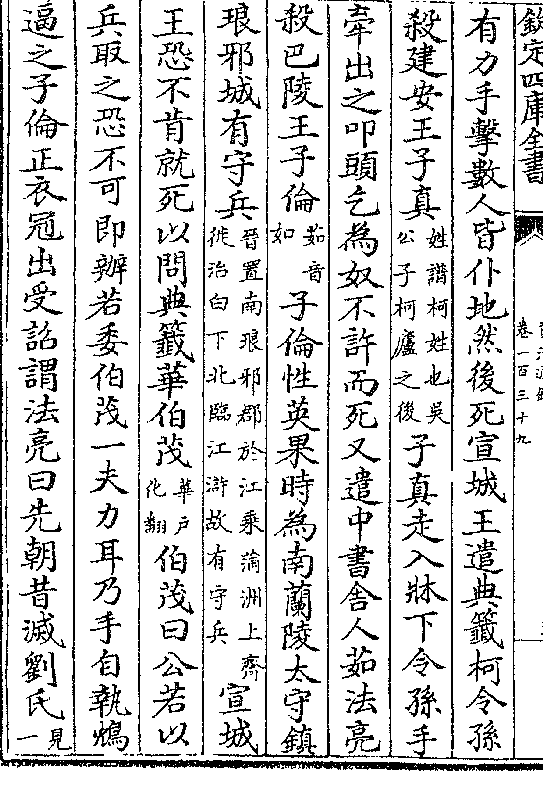 欽定四庫全書
卷一百三十九
有力手擊數人皆仆地然後死宣城王遣典籖柯令孫
殺建安王子真姓譜柯姓也吳公子柯廬之後子真走入牀下令孫手
牽出之叩頭乞為奴不許而死又遣中書舍人茹法亮
殺巴陵王子倫茹音如子倫性英果時為南蘭陵太守鎮
琅邪城有守兵晉置南琅邪郡於江乘蒲洲上齊徙治白下北臨江滸故有守兵宣城
王恐不肯就死以問典籖華伯茂華户化翻伯茂曰公若以
兵取之恐不可即辦若委伯茂一夫力耳乃手自執鴆
逼之子倫正衣冠出受詔謂法亮曰先朝昔滅劉氏見一